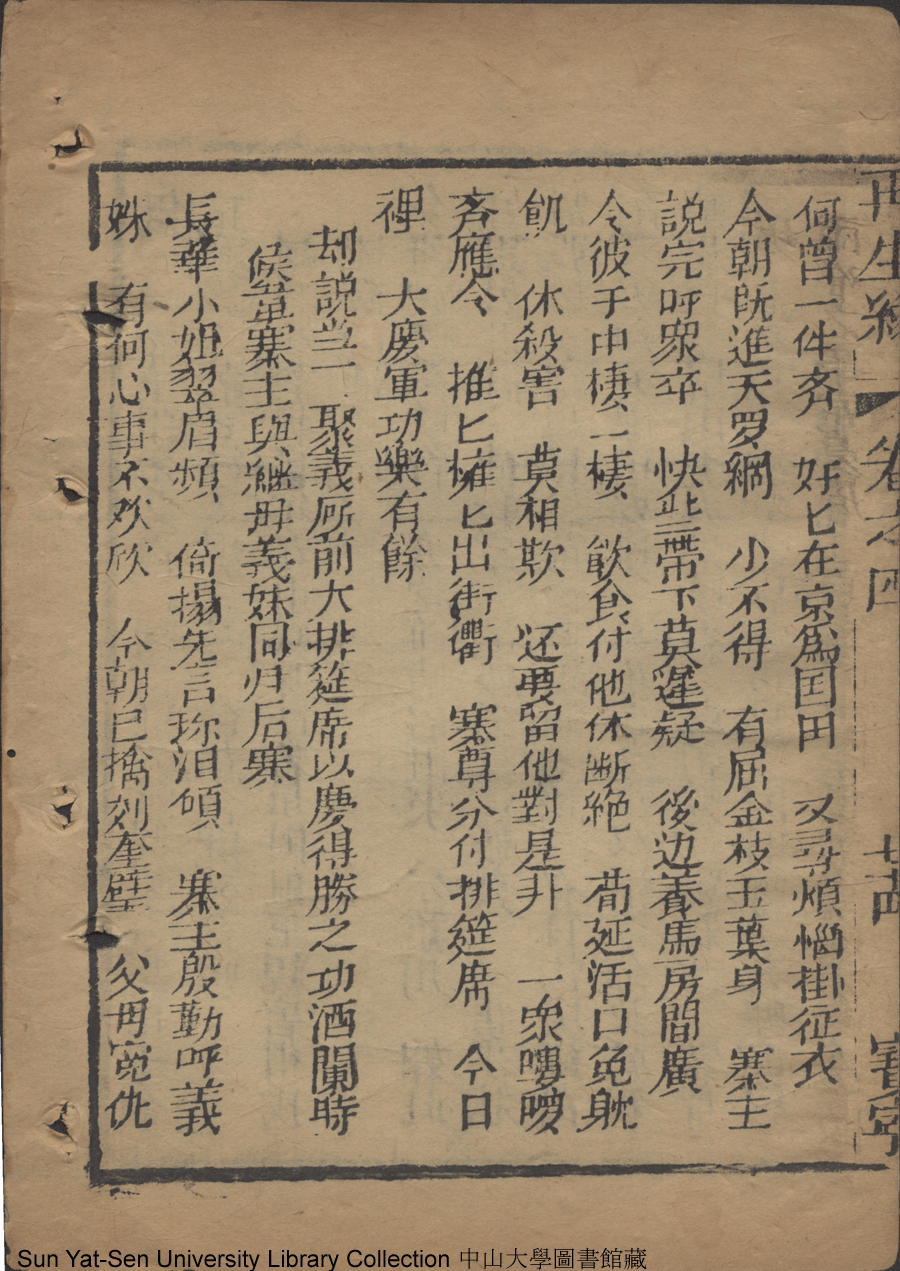 再生緣 卷之四
何曾一件齐 好匕在京為国田 又尋煩惱掛征衣
今朝旣進天罗網 少不得 有屈金枝玉葉身 寨主
説完呼眾卒 快些帶下莫遲疑 後边養馬房間廣
令彼于中棲一棲 飲食付他休断絶 苟延活口免躭
飢 休殺害 莫相欺 还要留他對是非 一眾嘍啰
斉應令 推匕擁匕出街衢 寨尊分付排筵席 今日
裡 大慶軍功樂有餘
却説当一 聚義厛前大排筵席以慶得勝之功酒闌時
候韋寨主與繼母義妹同归后寨
長華小姐翠眉頻 倚搨先言珎泪傾 寨主殷勤呼義
姝 有何心事不欢欣 今朝已擒刘奎璧 父母寃仇
Sun Yat-Sen University Library Collection 中山大學圖書館藏